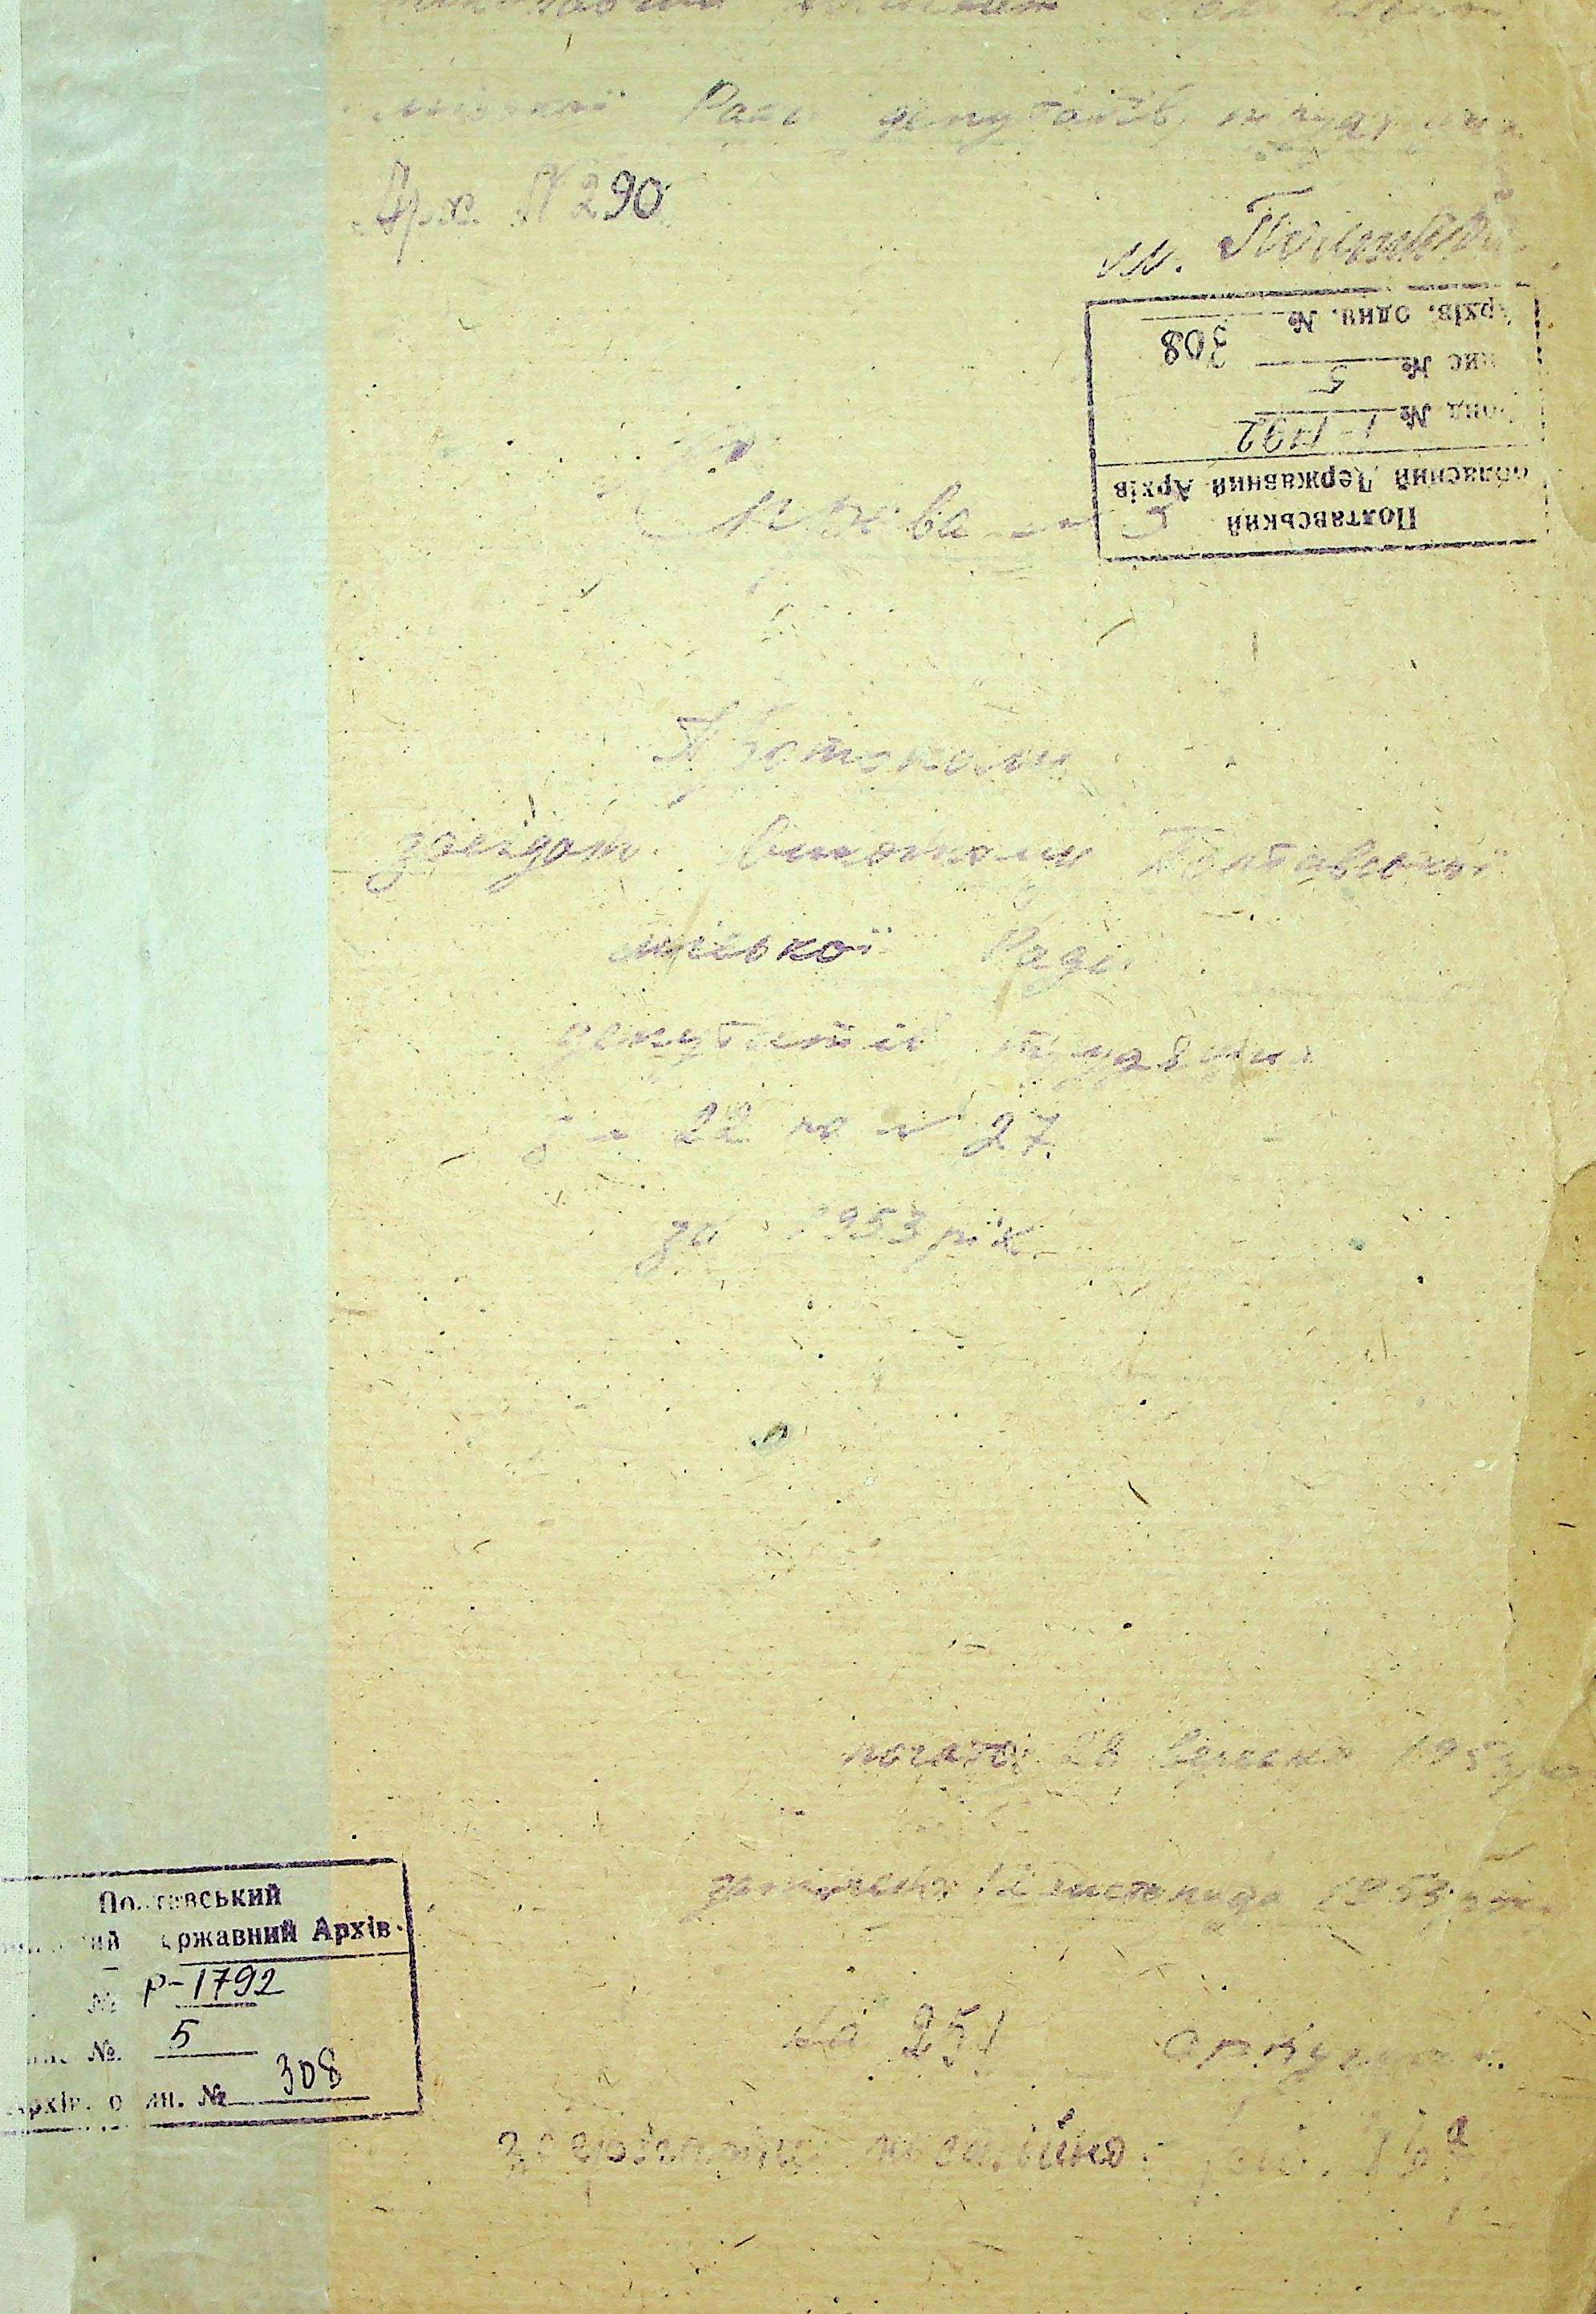 міської Ради депутатів трудящих
Арх. N 290
м. Полтава
Архів. один. № 308
опис № 5
Фонд № 1792
обласний Державний Архів
Полтавський
Протоколи
засідань виконкому Полтавської
міської Ради
депутатів трудящих
з N 22 по N 27
за 1953 рік
почато: 28 вересня 1953
закінчено 12 листопада 1953 року
Полтавський
Державний Архів
№ Р-1792
№ 5
Архів. один. № 308
на 251 аркушах
зберігати постійно